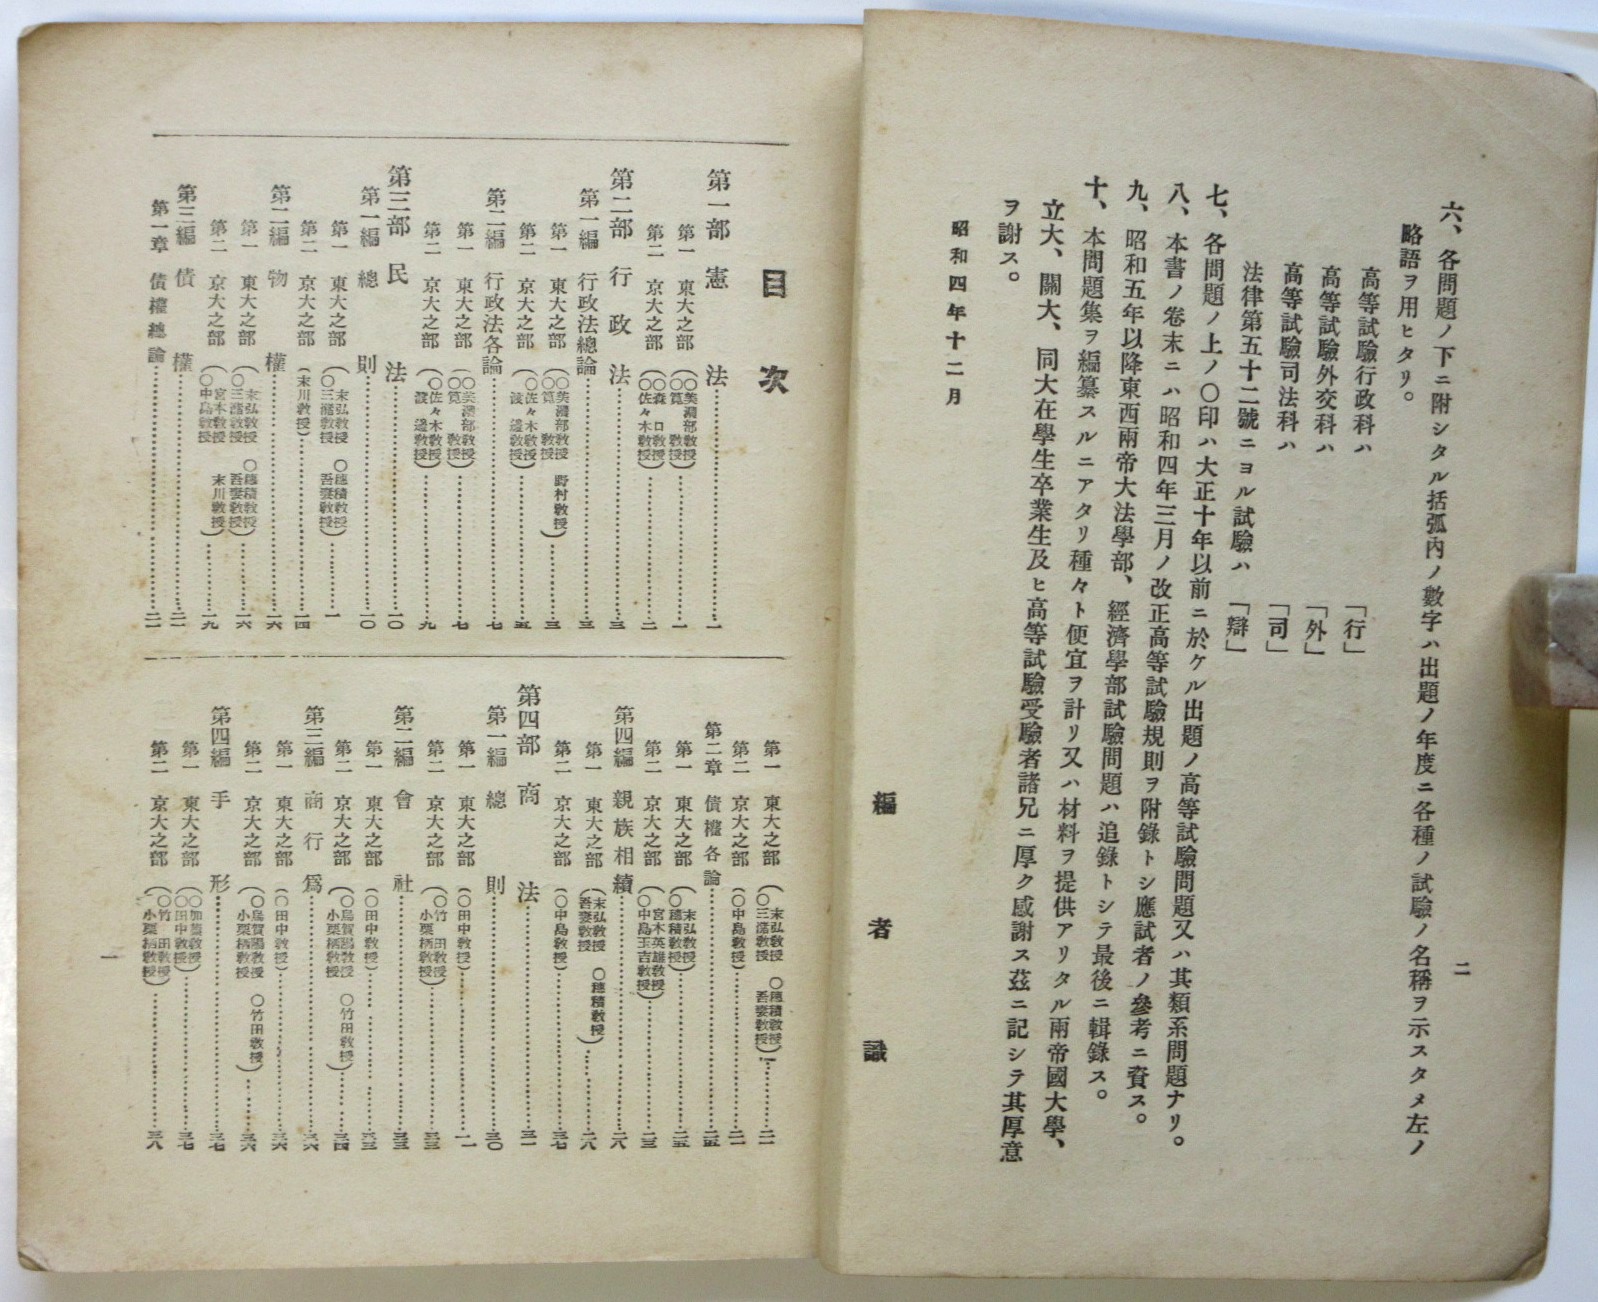 二
六、各問題ノ下ニ附シタル括弧內ノ數字ハ出題ノ年度ニ各種ノ試驗ノ名稱ヲ示スタメ左ノ
略語ヲ用ヒタリ。
高等試驗行政科ハ 「行」
高等試驗外交科ハ 「外」
高等試驗司法科ハ 「司」
法律第五十二號ニヨル試驗ハ 「辯」
七、各問題ノ上ノ〇印ハ大正十年以前ニ於ケル出題ノ高等試驗問題又ハ其類系問題ナリ。
八、本書ノ卷末ニハ昭和四年三月ノ改正高等試驗規則ヲ附錄トシ應試者ノ參考ニ資ス。
九、昭和五年以降東西兩帝大法學部、經濟學部試驗問題ハ追錄トシテ最後ニ輯錄ス。
十、本問題集ヲ編纂スルニアタリ種々ト便宜ヲ計リ又ハ材料ヲ提供アリタル兩帝國大學、
立大、關大、同大在學生卒業生及ヒ高等試驗受驗者諸兄ニ厚ク感謝ス茲ニ記シテ其厚意
ヲ謝ス。
昭和四年十二月
編者識
目次
第一部 憲法……一
第一 東大之部(〇美濃部敎授 〇筧敎授)……一
第二 京大之部(〇森口敎授 〇佐々木敎授)……二
第二部 行政法……三
第一編 行政法總論……三
第一 東大之部(〇美濃部敎授 〇筧敎授 野村敎授)……三
第二 京大之部(〇佐々木敎授 渡邊敎授)……五
第二編 行政法各論……七
第一 東大之部(〇美濃部敎授 〇筧敎授)……七
第二 京大之部(〇佐々木敎授 渡邊敎授)……九
第三部 民法……一〇
第一編 總則……一〇
第一 東大之部(末弘敎授 〇三潴敎授 〇穗積敎授 吾妻敎授)……一
第二 京大之部(末川敎授)……一四
第二編 物權……一六
第一 東大之部(末弘敎授 〇三潴敎授 〇穗積敎授 吾妻敎授)……一六
第二 京大之部(宮本敎授 〇中島敎授 末川敎授)……一九
第三編 債權……二一
第一章 債權總論……二一
第一 東大之部(末弘敎授 〇三潴敎授 〇穗積敎授 吾妻敎授)……二一
第二 京大之部(〇中島敎授)……二一
第二章 債權各論……二五
第一 東大之部(末弘敎授 〇穗積敎授)……二五
第二 京大之部(宮本英雄敎授 〇中島玉吉敎授)……二三
第四編 親族相續……二八
第一 東大之部(末弘敎授 吾妻敎授 〇穗積敎授)……二八
第二 京大之部(〇中島敎授)……三七
第四部 商法……三一
第一編 總則……三〇
第一 東大之部(〇田中敎授)……一一
第二 京大之部(〇竹田敎授 小栗栖敎授)……三三
第二編 會社……三三
第一 東大之部(〇田中敎授)……三三
第二 京大之部(〇烏賀陽敎授 小栗栖敎授 〇竹田敎授)……三四
第三編 商行爲……三六
第一 東大之部(〇田中敎授)……三六
第二 京大之部(〇烏賀陽敎授 小栗栖敎授 〇竹田敎授)……三六
第四編 手形……三七
第一 東大之部(〇加藤敎授 〇田中敎授)……三七
第二 京大之部(〇竹田敎授 小栗栖敎授)……三八
一